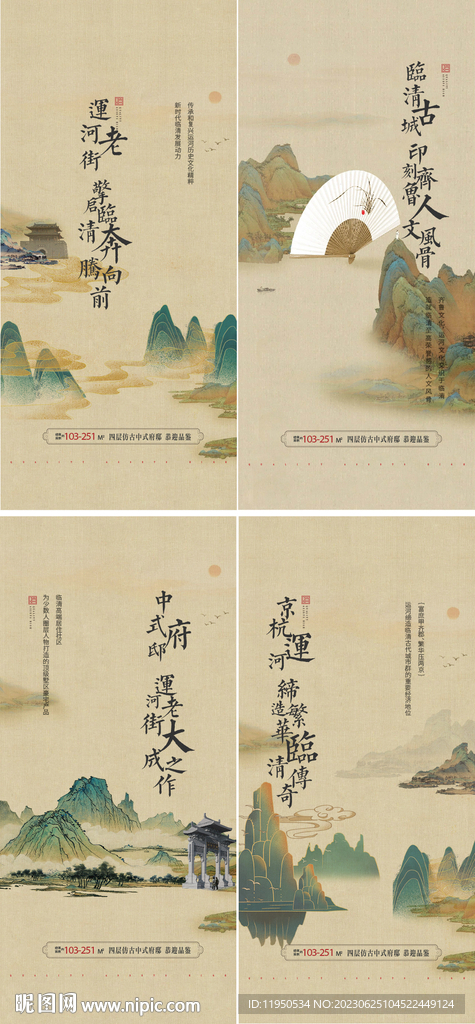 運河老街
擎啟臨清
奔騰向前
传承和复兴运河历史文化精粹
新时代临清发展动力
103-251 M² 四层仿古中式府邸 恭迎品鉴
臨清古城
印刻齊魯
人文風骨
103-251 M² 四层仿古中式府邸 恭迎品鉴
中式府邸
運河老街
大成之作
临清高端居住社区
为少数人圈层人物打造的顶级墅区豪宅产品
103-251 M² 四层仿古中式府邸 恭迎品鉴
京杭運河
締造繁華
臨清傳奇
(富庶甲齐郡、繁华压两京)
运河缔造临清古代城市群的重要经济地位
103-251 M² 四层仿古中式府邸 恭迎品鉴
昵图网 www.nipic.com
ID:11950534 NO:20230625104522449124